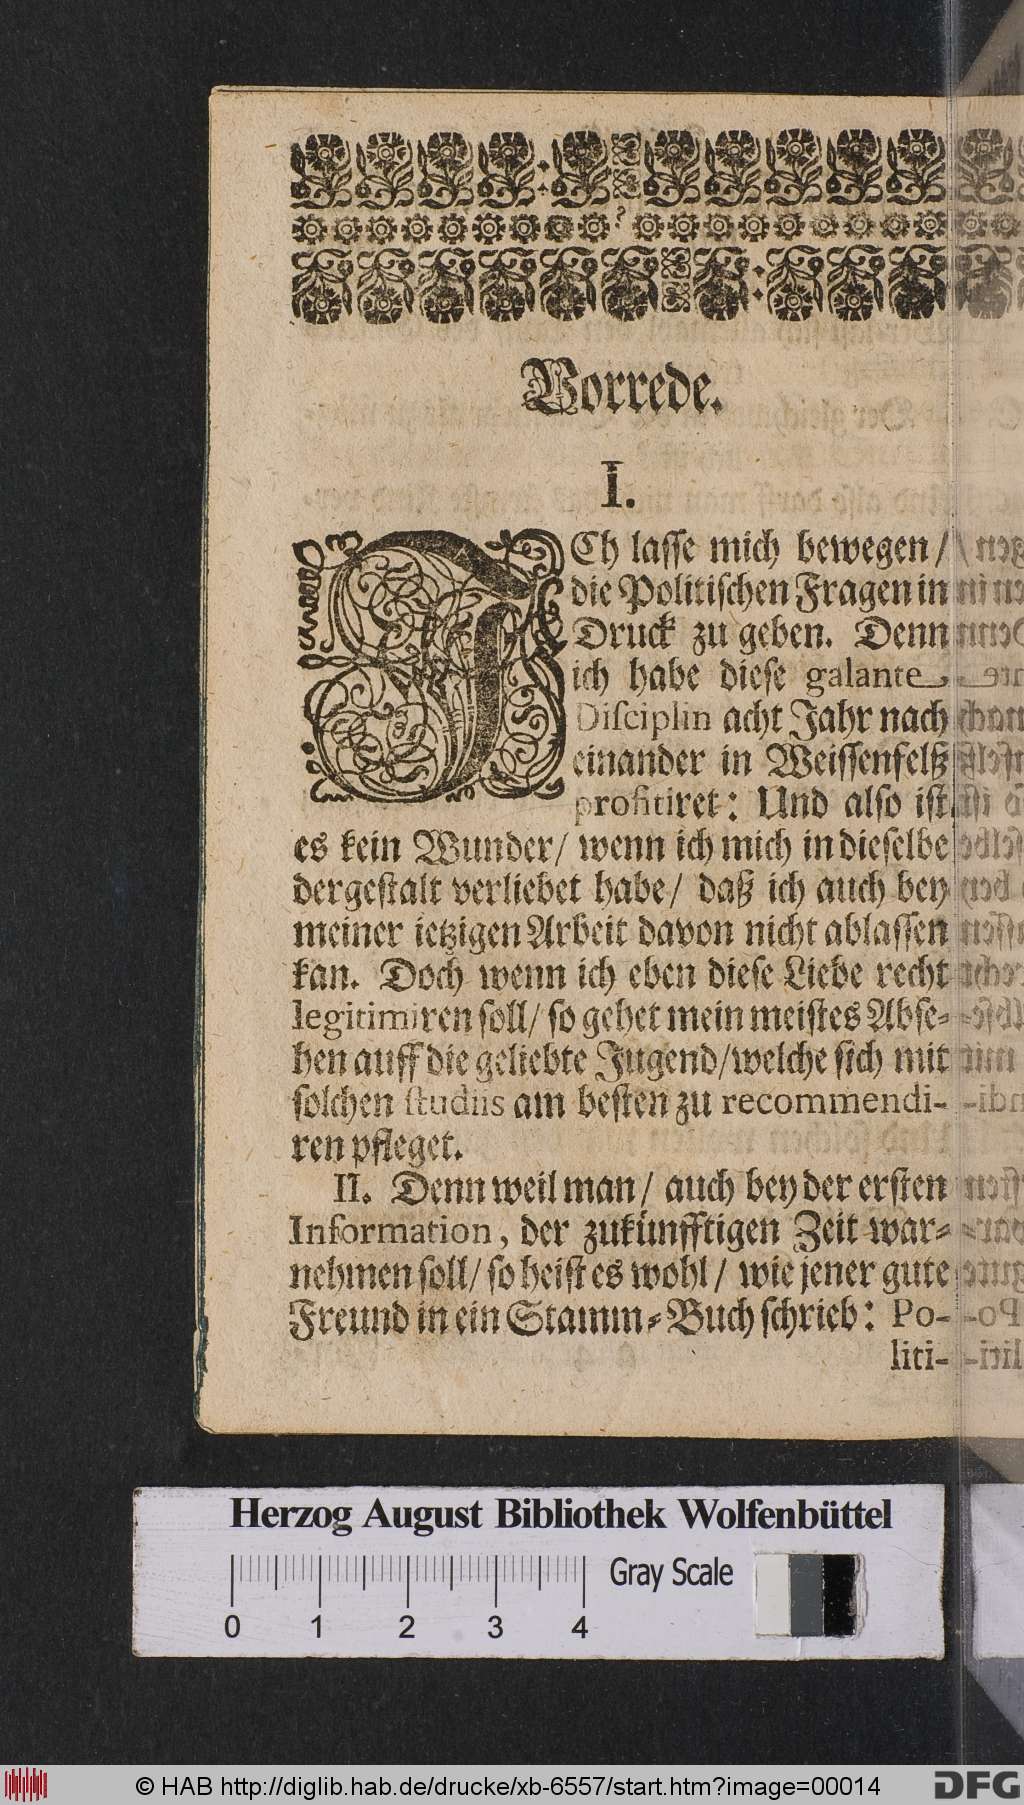 Vorrede.
I.
ICh lasse mich bewegen/
die Politischen Fragen in
Druck zu geben. Denn
ich habe diese galante
Disciplin acht Jahr nach
einander in Weissenfelß
profitiret: Und also ist
es kein Wunder/ wenn ich mich in dieselbe
dergestalt verliebet habe/ daß ich auch bey
meiner ietzigen Arbeit davon nicht ablassen
kan. Doch wenn ich eben diese Liebe recht
legitimiren soll/ so gehet mein meistes Abse-
hen auff die geliebte Jugend/ welche sich mit
solchen studiis am besten zu recommendi-
ren pfleget.
II. Denn weil man/ auch bey der ersten
Information, der zukünfftigen Zeit war-
nehmen soll/ so heist es wohl/ wie jener gute
Freund in ein Stamm-Buch schrieb: Po-
liti-
Herzog August Bibliothek Wolfenbüttel
Gray Scale
0 1 2 3 4
© HAB http://diglib.hab.de/drucke/xb-6557/start.htm?image=00014
DFG